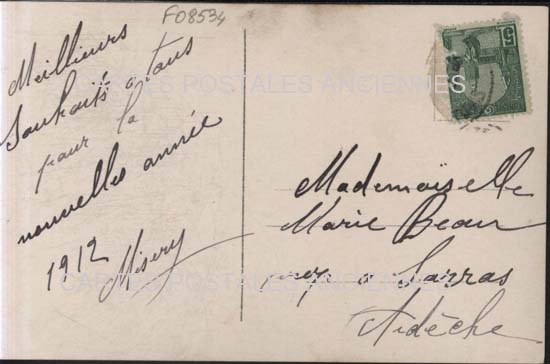 F08534
Meilleurs
Souhaits a tous
pour la
nouvelles année
1912 Misery
Mademoiselle
Marie Beau
a Sarras
Ardèche
5
CARTES POSTALES ANCIENNES
CARTES POSTALES ANCIENNES